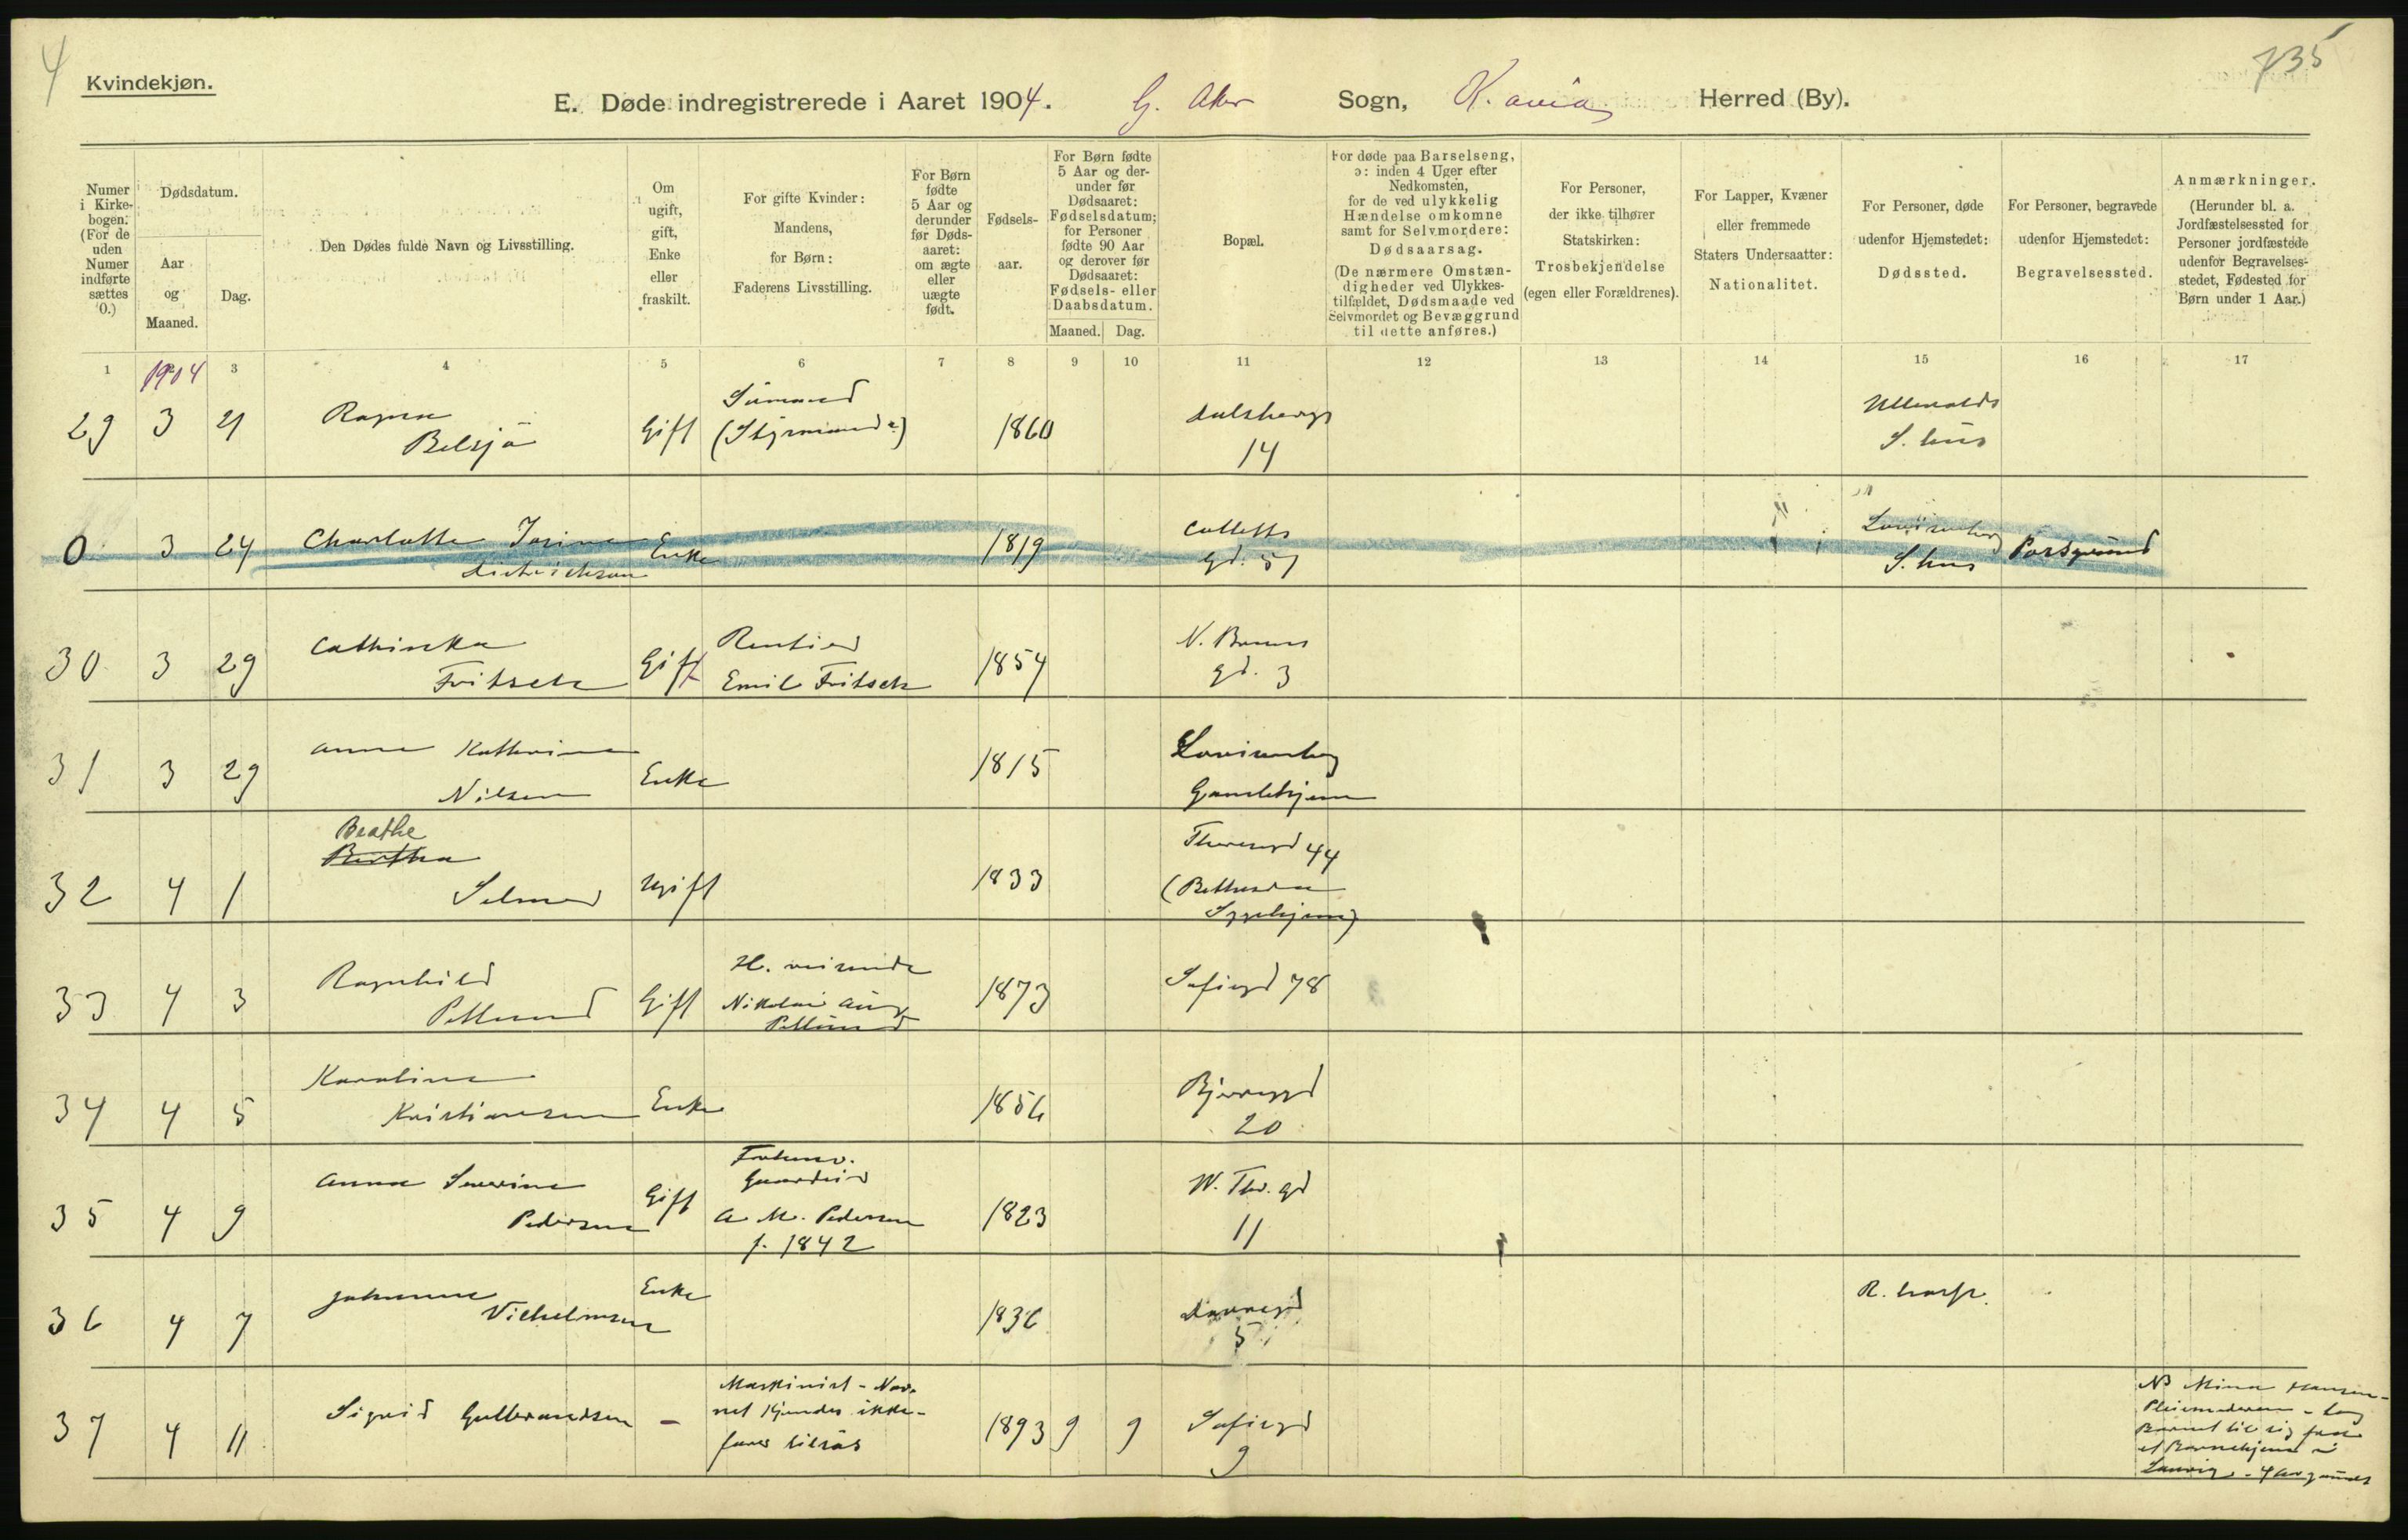 4
735
Kvindekjøn.
E. Døde indregistrerede i Aaret 1904. G. Aker Sogn, K.ania Herred (By).
Numer i Kirkebogen. (For de uden Numer indførte sættes 0.)
Dødsdatum.
Aar og Maaned.
Dag.
Den Dødes fulde Navn og Livsstilling.
Om ugift, gift, Enke eller fraskilt.
For gifte Kvinder: Mandens, for Børn: Faderens Livsstilling.
For Børn fødte 5 Aar og derunder før Dødsaaret: om ægte eller uægte født.
Fødselsaar.
For Børn fødte 5 Aar og derunder før Dødsaaret: Fødselsdatum; for Personer fødte 90 Aar og derover før Dødsaaret: Fødsels- eller Daabsdatum.
Maaned. Dag.
Bopæl.
For døde paa Barselseng, ɔ: inden 4 Uger efter Nedkomsten, for de ved ulykkelig Hændelse omkomne samt for Selvmordere: Dødsaarsag. (De nærmere Omstændigheder ved Ulykkestilfældet, Dødsmaade ved Selvmordet og Bevæggrund til dette anføres.)
For Personer, der ikke tilhører Statskirken: Trosbekjendelse (egen eller Forældrenes).
For Lapper, Kvæner eller fremmede Staters Undersaatter: Nationalitet.
For Personer, døde udenfor Hjemstedet: Dødssted.
For Personer, begravede udenfor Hjemstedet: Begravelsessted.
Anmærkninger. (Herunder bl. a. Jordfæstelsessted for Personer jordfæstede udenfor Begravelsesstedet, Fødested for Børn under 1 Aar.)
1 1904 3 4 5 6 7 8 9 10 11 12 13 14 15 16 17
29 3 21 Ragna Belsjö Gift Sömand (Styrmand?) 1860 Dælsbergs 14 Ullevolds S.hus
0 3 24 Charlotte Josine Didrichsen Enke 1819 Colletts gd. 51 Lovisenberg S.hus Porsgrund
30 3 29 Cathinka Fritsch Gift Rentier Emil Fritsch 1854 N. Bruns gd. 3
31 3 29 Anna Kathrine Nilsen Enke 1815 Lovisenberg Gamlehjem
32 4 1 Beathe Bertha Selmer Ugift 1833 Theresesgd 44 (Bethesda Sygehjem)
33 4 3 Ragnhild Petlund Gift Nikolai Aug Petlund 1873 Sofiegd 78
34 4 5 Karoline Kristiansen Enke 1856 Bjerregd 20
35 4 9 Anna Severine Pedersen Gift Forhenv. Gaardeier A M. Pedersen f. 1842 1823 W. Thr. gd 11
36 4 7 Johanne Vilhelmsen Enke 1836 5 R.hosp.
37 4 11 Sigrid Gulbrandsen - Maskinist - Navnet kjendes ikke - fares tilsös 1893 9 9 Sofiegd 9 NB Mina Hansen - Pleiemoderen - tog Barnet til sig fra et Barnehjem i Laurvig - 4 Aar gammelt